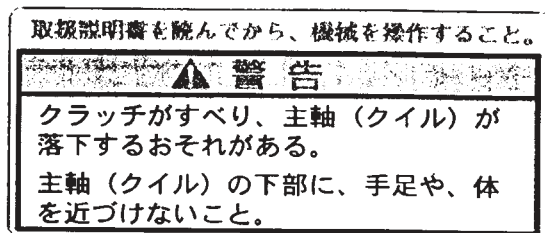 取扱説明書を読んでから、機械を操作すること。
警告
クラッチがすべり、主軸（クイル）が
落下するおそれがある。
主軸（クイル）の下部に、手足や、体
を近づけないこと。